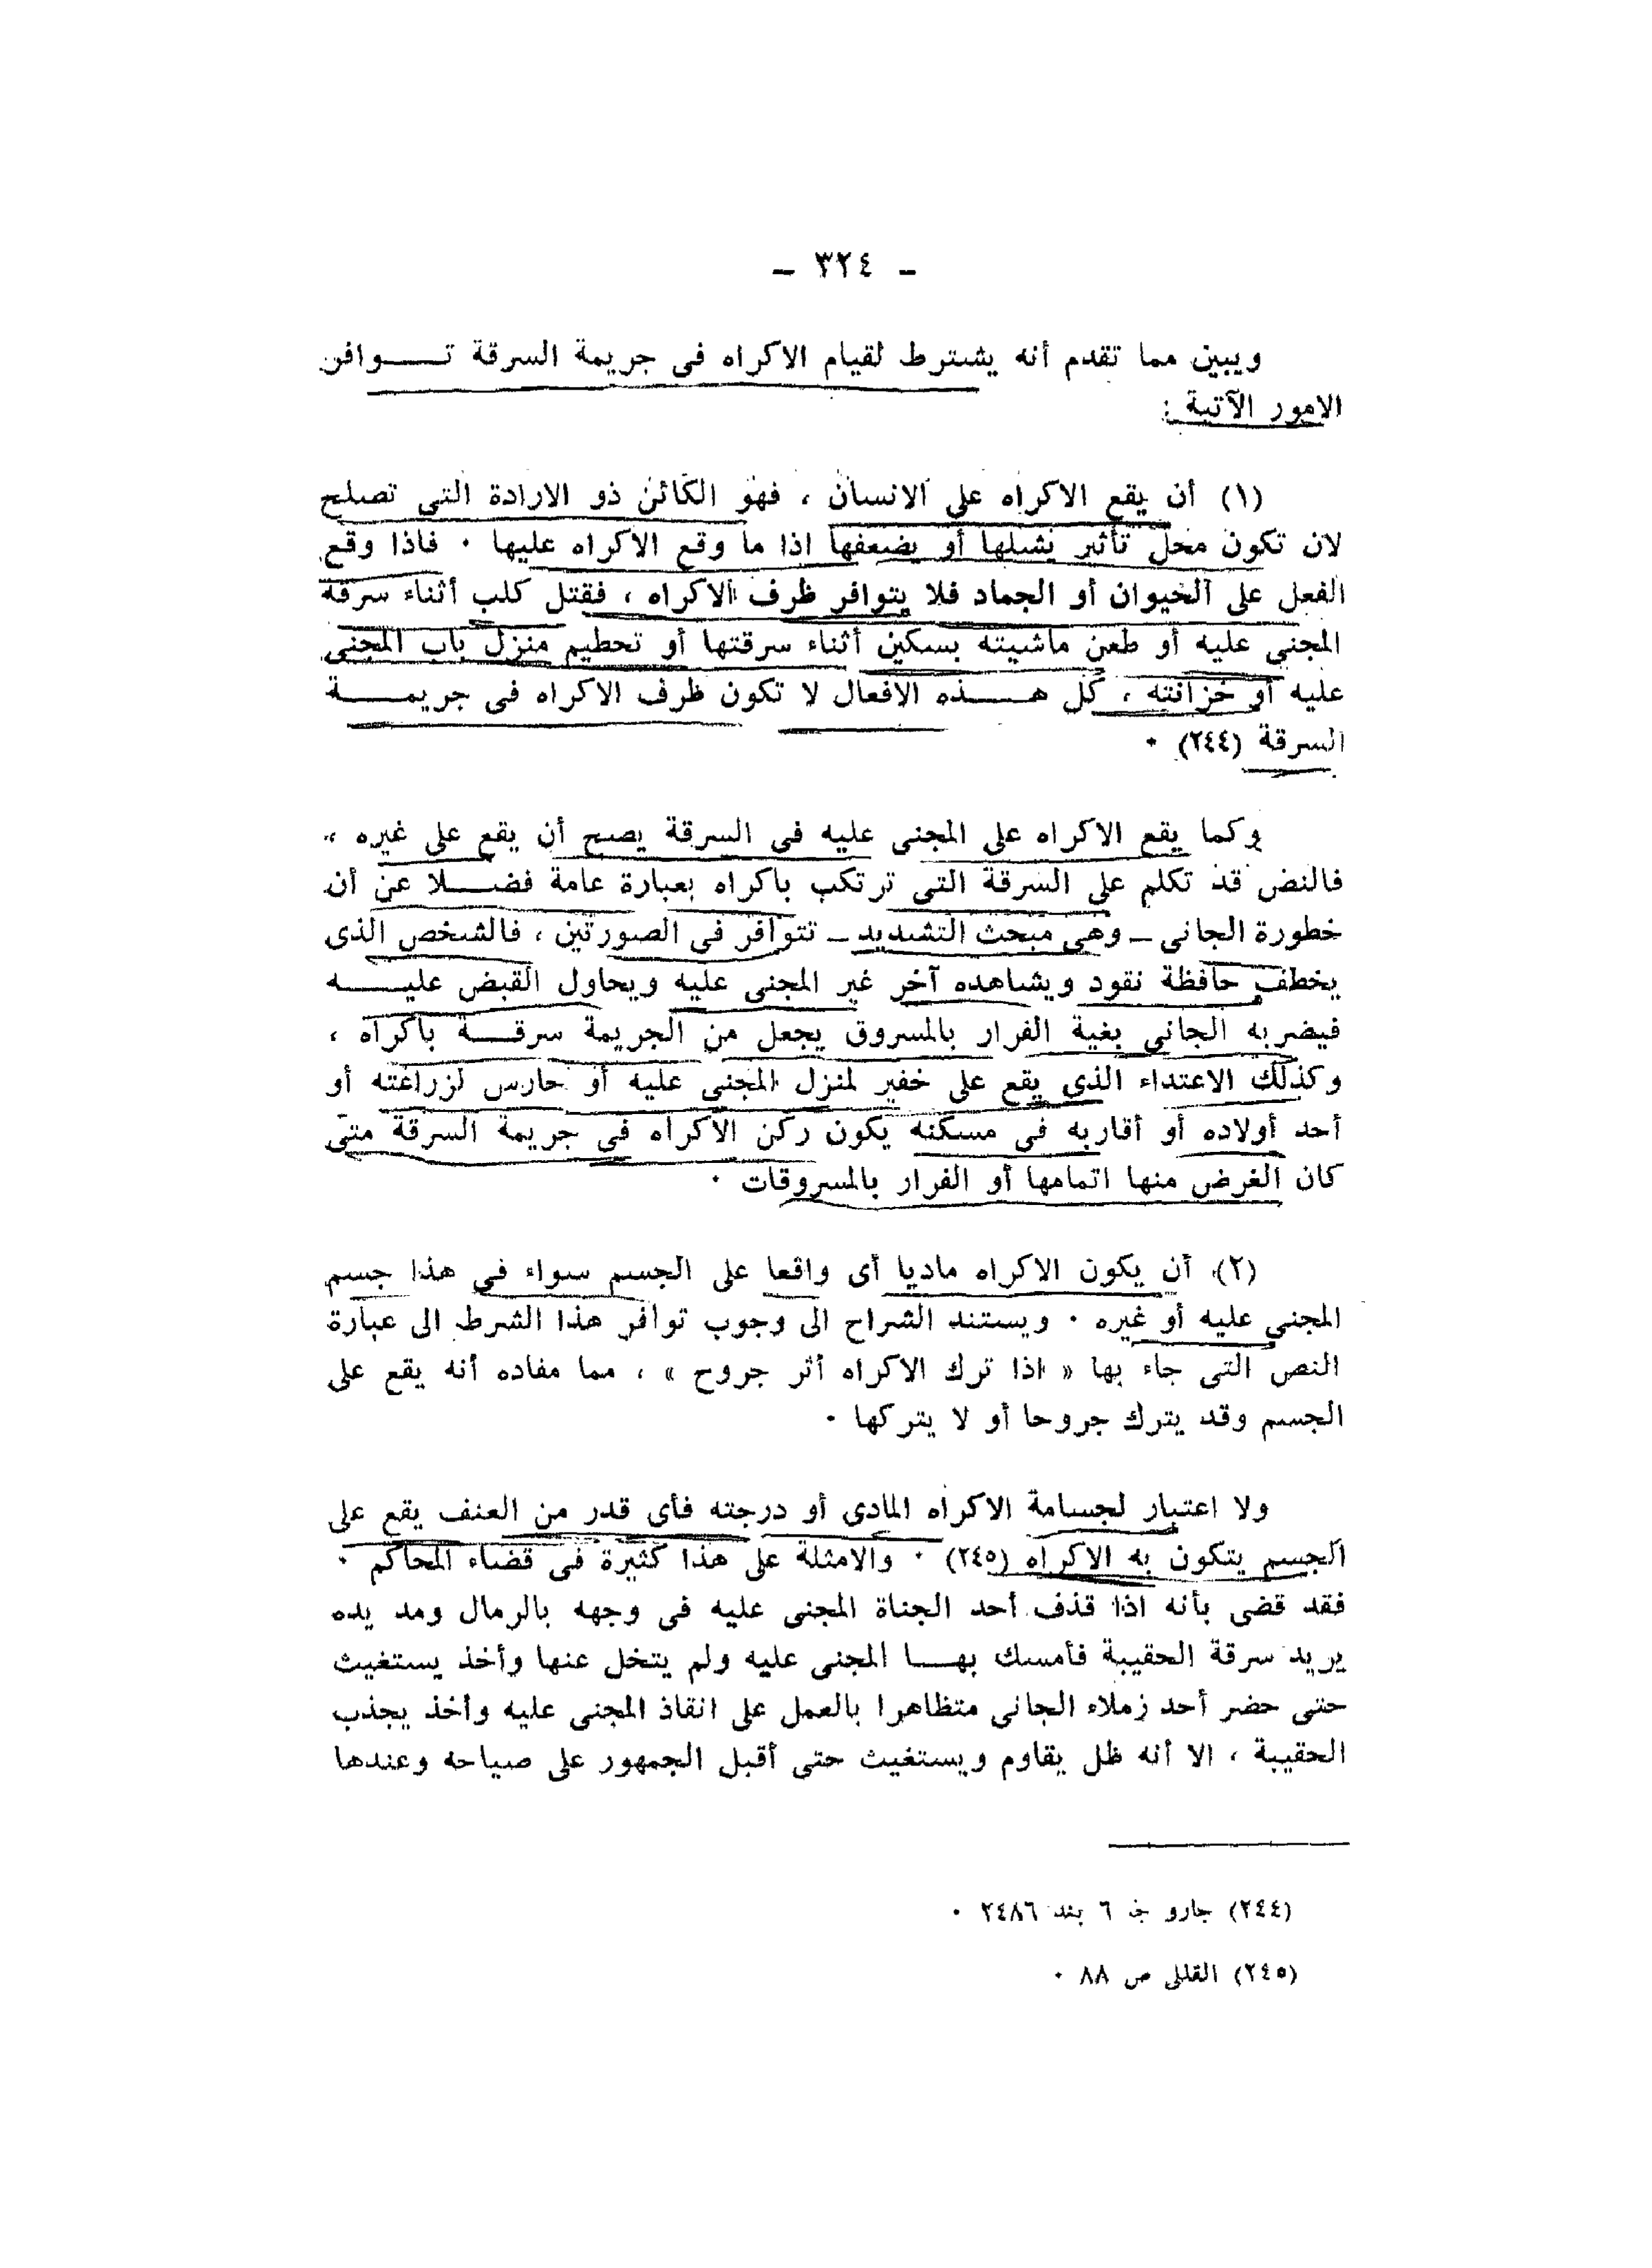 – ٣٢٤ –
ويبين مما تقدم أنه يشترط لقيام الاكراه فى جريمة السرقة تـــوافر
الامور الآتية :
(١) أن يقع الاكراه على الانسان ، فهو الكائن ذو الارادة التى تصلح
لان تكون محل تأثير يشلها أو يضعفها اذا ما وقع الاكراه عليها ٠ فاذا وقع
الفعل على الحيوان أو الجماد فلا يتوافر ظرف الاكراه ، فقتل كلب أثناء سرقة
المجنى عليه أو طعن ماشيته بسكين أثناء سرقتها أو تحطيم منزل باب المجنى
عليه أو خزانته ، كل هـــذه الافعال لا تكون ظرف الاكراه فى جريمـــة
السرقة (٢٤٤) ٠
وكما يقع الاكراه على المجنى عليه فى السرقة يصح أن يقع على غيره ،
فالنص قد تكلم على السرقة التى ترتكب باكراه بعبارة عامة فضـــلا عن أن
خطورة الجانى – وهى مبحث التشديد – تتوافر فى الصورتين ، فالشخص الذى
يخطف حافظة نقود ويشاهده آخر غير المجنى عليه ويحاول القبض عليـــه
فيضربه الجانى بغية الفرار بالمسروق يجعل من الجريمة سرقـــة باكراه ،
وكذلك الاعتداء الذى يقع على خفير لمنزل المجنى عليه أو حارس لزراعته أو
أحد أولاده أو أقاربه فى مسكنه يكون ركن الاكراه فى جريمة السرقة متى
كان الغرض منها اتمامها أو الفرار بالمسروقات ٠
(٢) أن يكون الاكراه ماديا أى واقعا على الجسم سواء فى هذا جسم
المجنى عليه أو غيره ٠ ويستند الشراح الى وجوب توافر هذا الشرط الى عبارة
النص التى جاء بها « اذا ترك الاكراه أثر جروح » ، مما مفاده أنه يقع على
الجسم وقد يترك جروحا أو لا يتركها ٠
ولا اعتبار لجسامة الاكراه المادى أو درجته فأى قدر من العنف يقع على
الجسم يتكون به الاكراه (٢٤٥) ٠ والامثلة على هذا كثيرة فى قضاء المحاكم ٠
فقد قضى بأنه اذا قذف أحد الجناة المجنى عليه فى وجهه بالرمال ومد يده
يريد سرقة الحقيبة فأمسك بهـــا المجنى عليه ولم يتخل عنها وأخذ يستغيث
حتى حضر أحد زملاء الجانى متظاهرا بالعمل على انقاذ المجنى عليه وأخذ يجذب
الحقيبة ، الا أنه ظل يقاوم ويستغيث حتى أقبل الجمهور على صياحه وعندها
(٢٤٤) جارو جـ ٦ بند ٢٤٨٦ ٠
(٢٤٥) القللى ص ٨٨ ٠